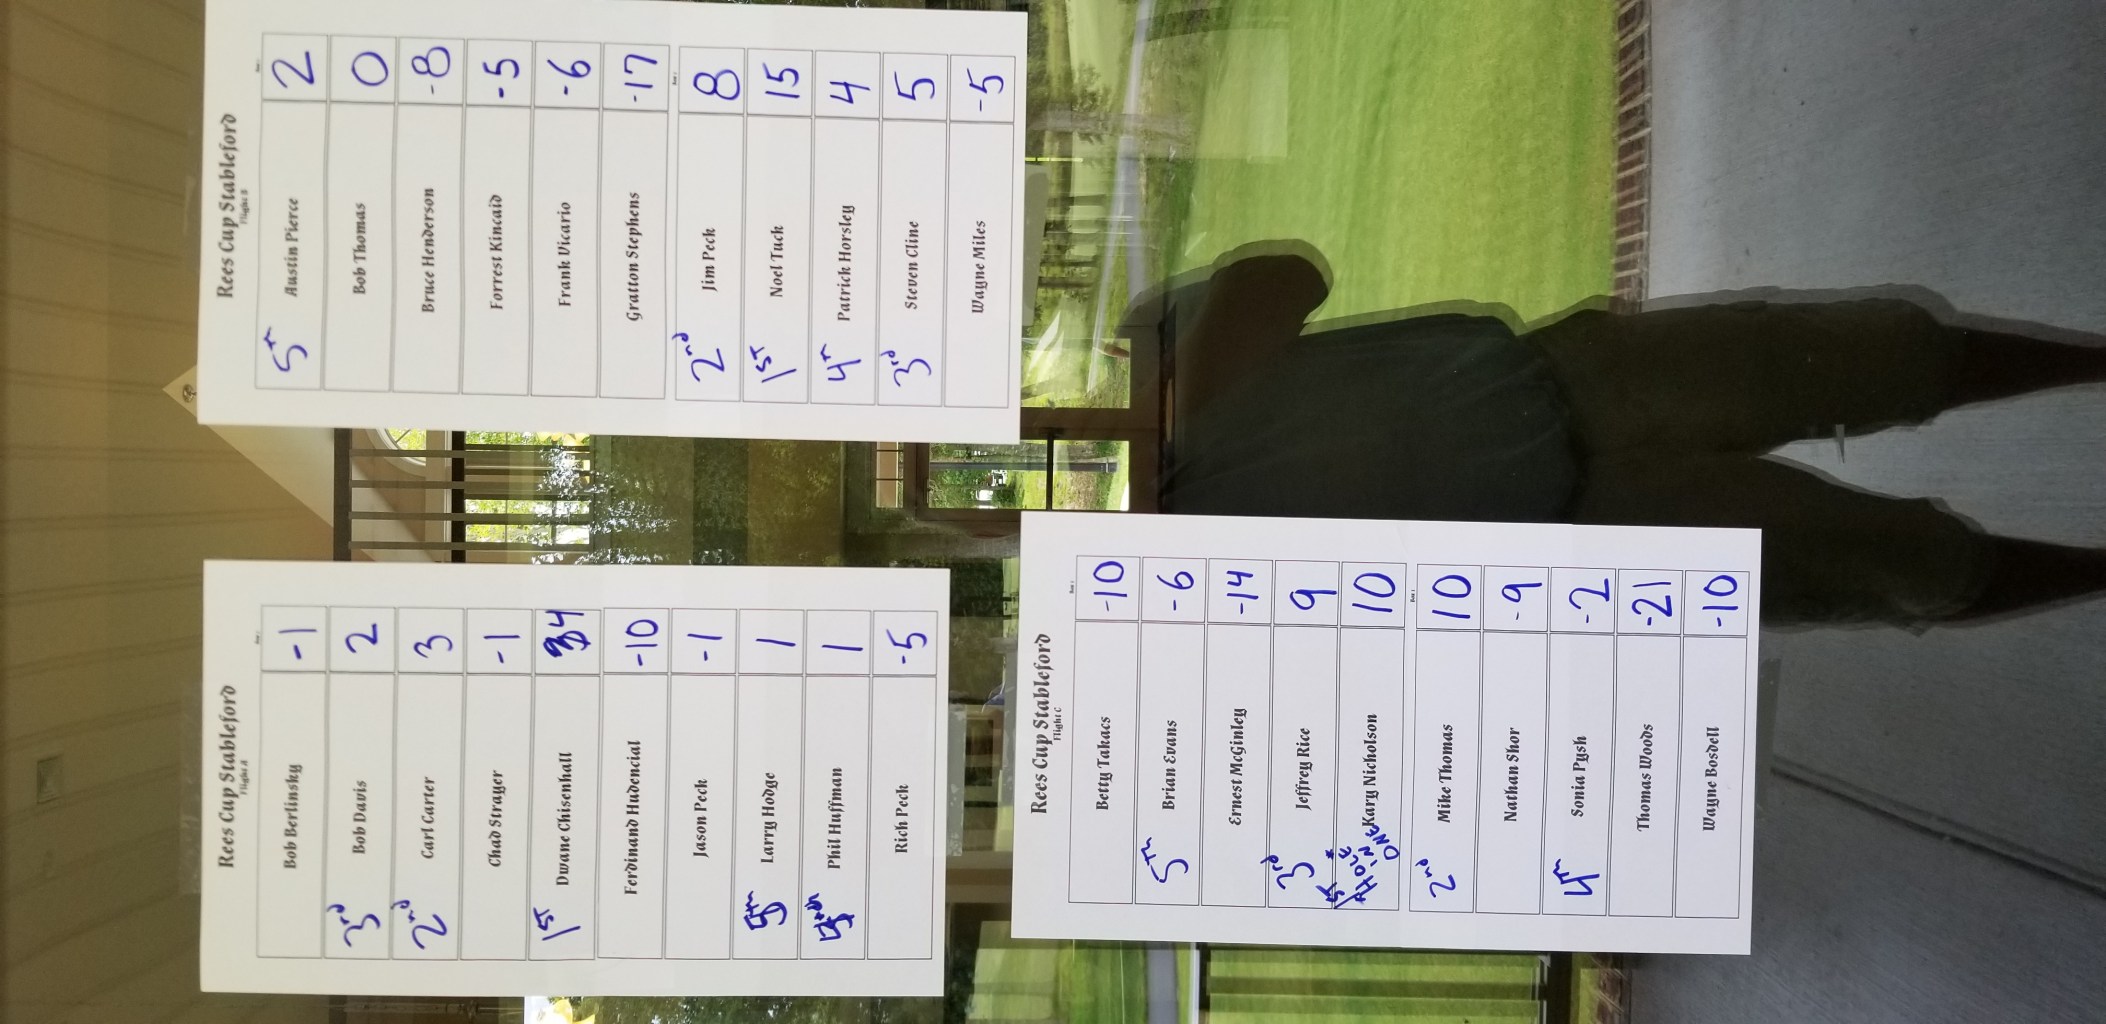 Rees Cup Stableford
Flight A
Bob Berlinsky -1
3rd Bob Davis 2
2nd Carl Carter 3
Chad Strayer -1
1st Dwane Chisenhall 4
Ferdinand Hudencial -10
Jason Peck -1
Larry Hodge 1
Phil Huffman 1
Rich Peck -5
Rees Cup Stableford
Flight B
5th Austin Pierce 2
Bob Thomas 0
Bruce Henderson -8
Forrest Kincaid -5
Frank Vicario -6
Gratton Stephens -17
2nd Jim Peck 8
1st Noel Tuck 15
4th Patrick Horsley 4
3rd Steven Cline 5
Wayne Miles -5
Rees Cup Stableford
Flight C
Betty Takacs -10
5th Brian Evans -6
Ernest McGinley -14
3rd Jeffrey Rice 9
1st * HOLE * IN ONE Kary Nicholson 10
2nd Mike Thomas 10
Nathan Shor -9
4th Sonia Pysh -2
Thomas Woods -21
Wayne Bosdell -10